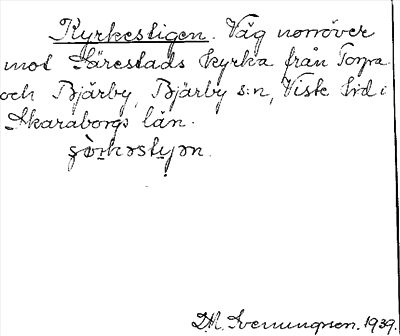 Kyrkestigen. Väg norröver
mot Särestads kyrka från Torpa
och Bjärby, Bjärby s:n, Viste hd i
Skaraborgs län.
D.M. Svenungsson. 1939.